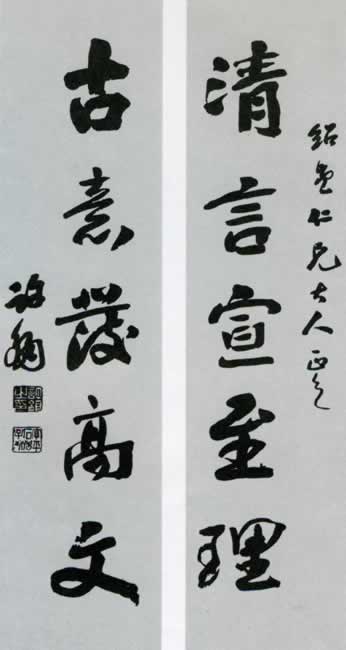 紹仁兄大人正之
清言宣至理
古意發高文
許